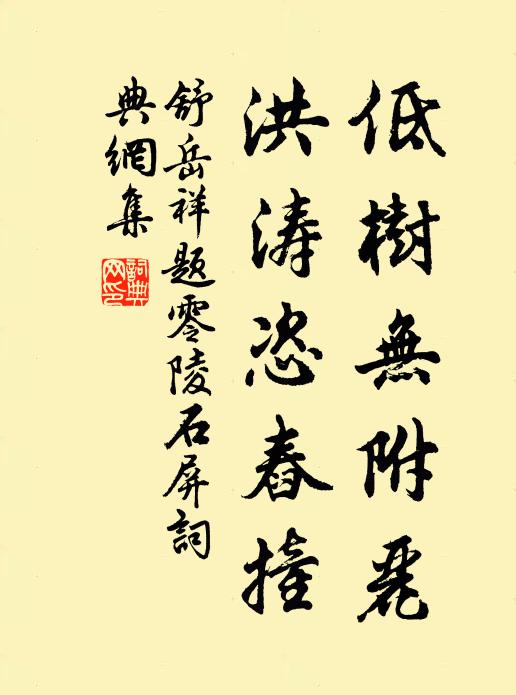 低樹無附麗
洪濤恣舂撞
舒岳祥題零陵石屏詞
典網集
詞典
网印